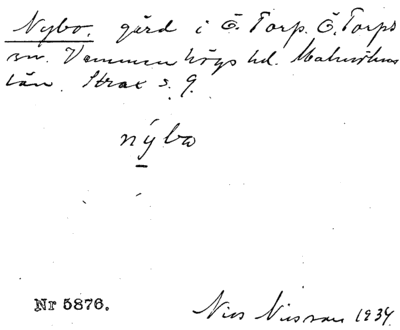 Nybo. gård i Ö. Torp. Ö. Torps
sn. Vemmenhögs hd. Malmöhus
län. Strax s. 9.
nýbo
Nr 5876.
Nils Nilsson 1934.